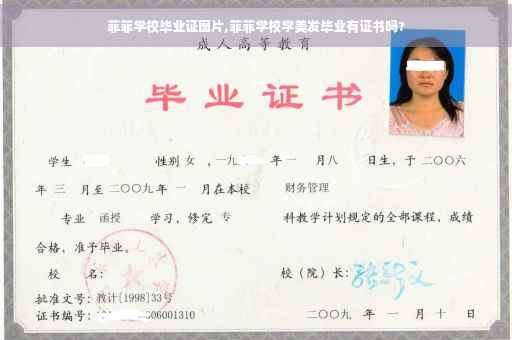 菲菲学校毕业证图片,菲菲学校学美发毕业有证书吗?
成人高等教育
毕业证书
学生 性别 女 , 一九 年 一 月八 日生, 于 二〇〇六
年 三 月至 二〇〇九 年 一 月在本校 财务管理
专业 函授 学习, 修完 专 科教学计划规定的全部课程, 成绩
合格, 准予毕业。
校 名: 校 (院) 长:
批准文号: 教计[1998]33号
证书编号: 06001310 二〇〇九 年 一 月 十 日